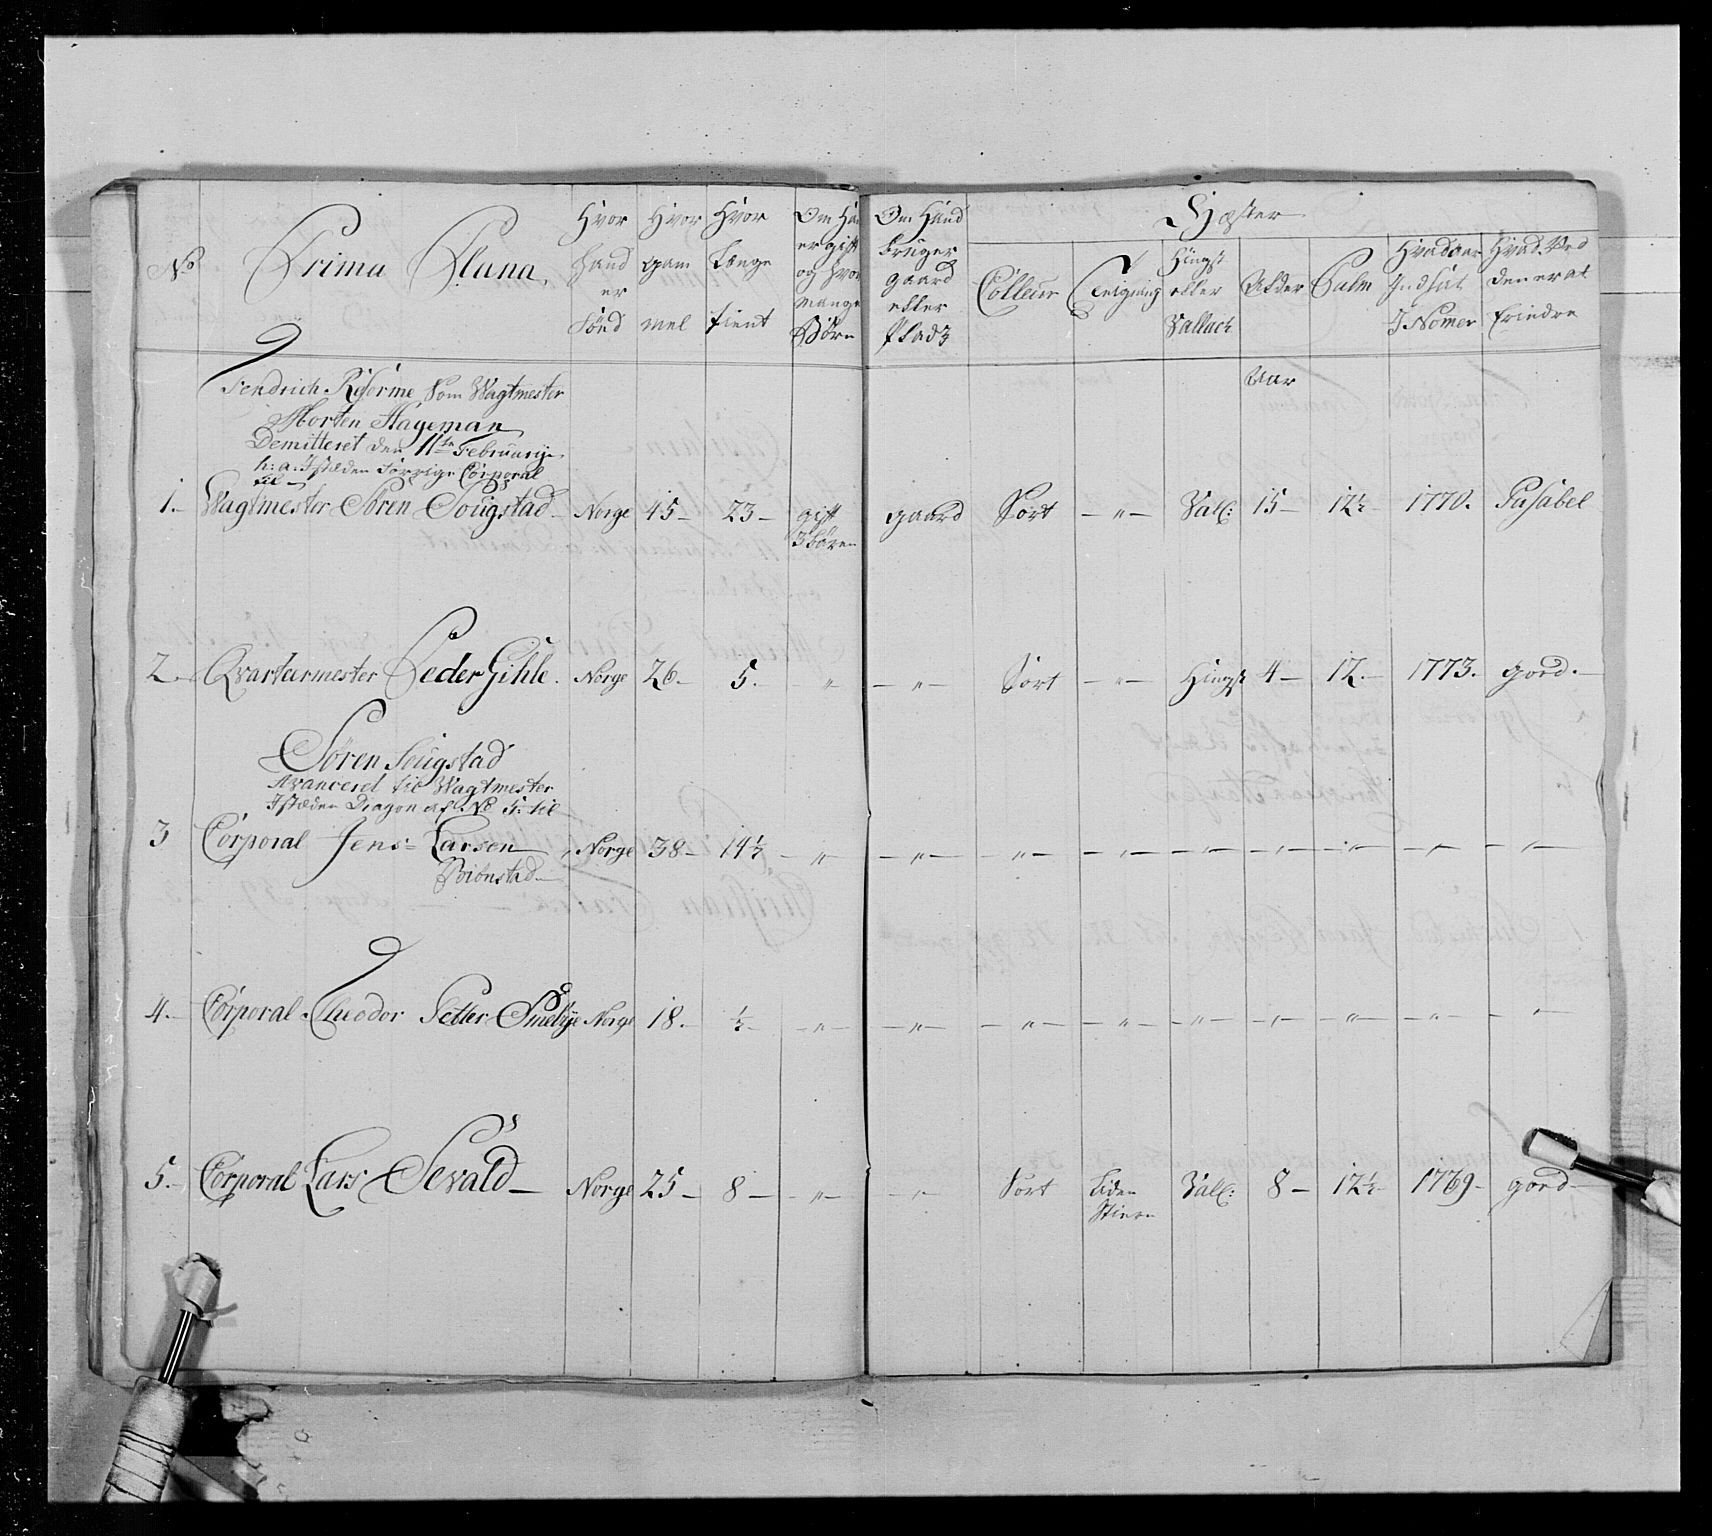 No
Prima Plana
Hvor
hand
er
född
Hvor
gam
mel
Hvor
længe
tient
Om Ha
er gift
og hvor
mange
Börn
Om Hand
bruger
gaard
eller
Pladz
Hæster
Colleur
Teigning
Hingst
eller
Vallach
Alder
Palm
Hvad aar
Indsat
I Nomer
Hvad Ved
den er at
Erindre
Aar
Fendrich Reforme Som Wagtmester
Morten Hageman
Demitteret den 11te Februarij
h: a: Istæden forrige Corporal
til
1. Wagtmester Sören Sougstad Norge 45 23 gift gaard Sort — " — Vall: 15 12½ 1770. Pasabel
3 Bören
2. Qvarteermester Peder Gihle. Norge 26. 5. " — " — Sort — " — Hingst 4 12. 1773. god.
Sören Sougstad
Avanceret til Wagtmester
Istæden Dragon af No 5: til
3 Corporal Jens Larsen Norge 38 14½ — " — — " — — " — — " — — " — — " — — " — — " — — " —
Biönstad
4. Corporal Theodor Petter Smebye Norge 18. ½ — " — — " — — " — — " — — " — — " — — " — — " — — " —
5. Corporal Lars Sevald Norge 25 8 — " — — " — Sort Liden Vall: 8 12½ 1769 god
Stiern